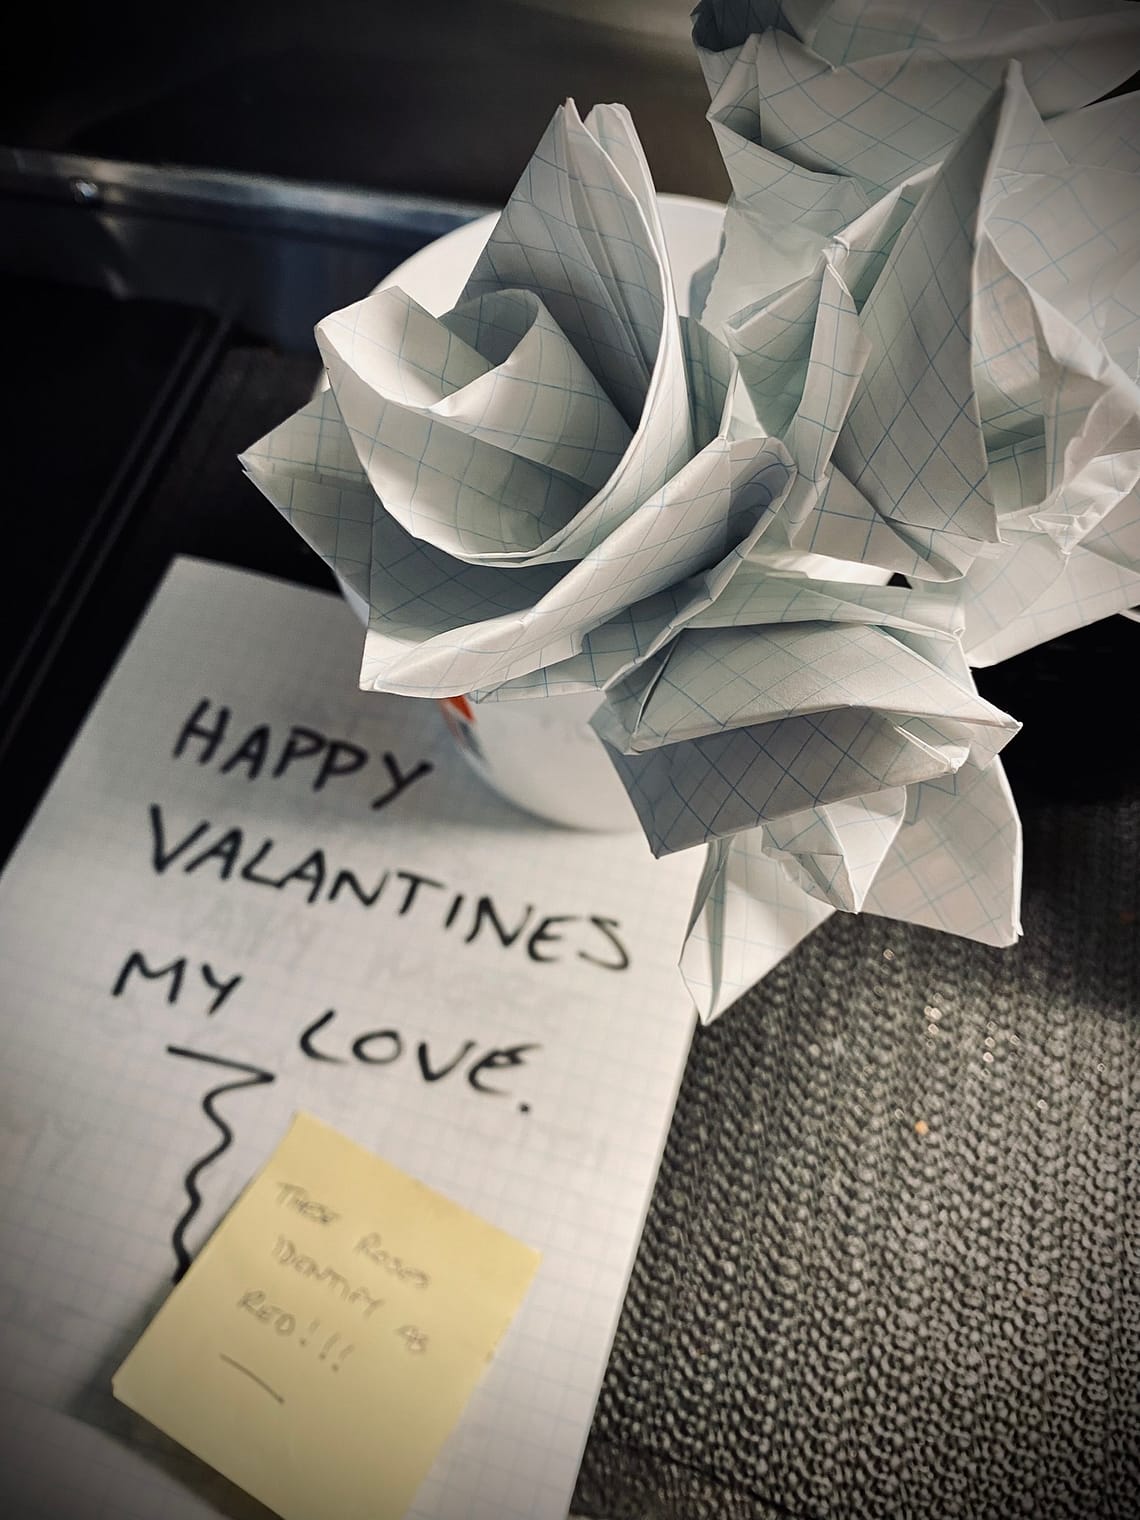 HAPPY
VALANTINES
MY LOVE.
THESE ROSES
IDENTIFY AS
RED!!!